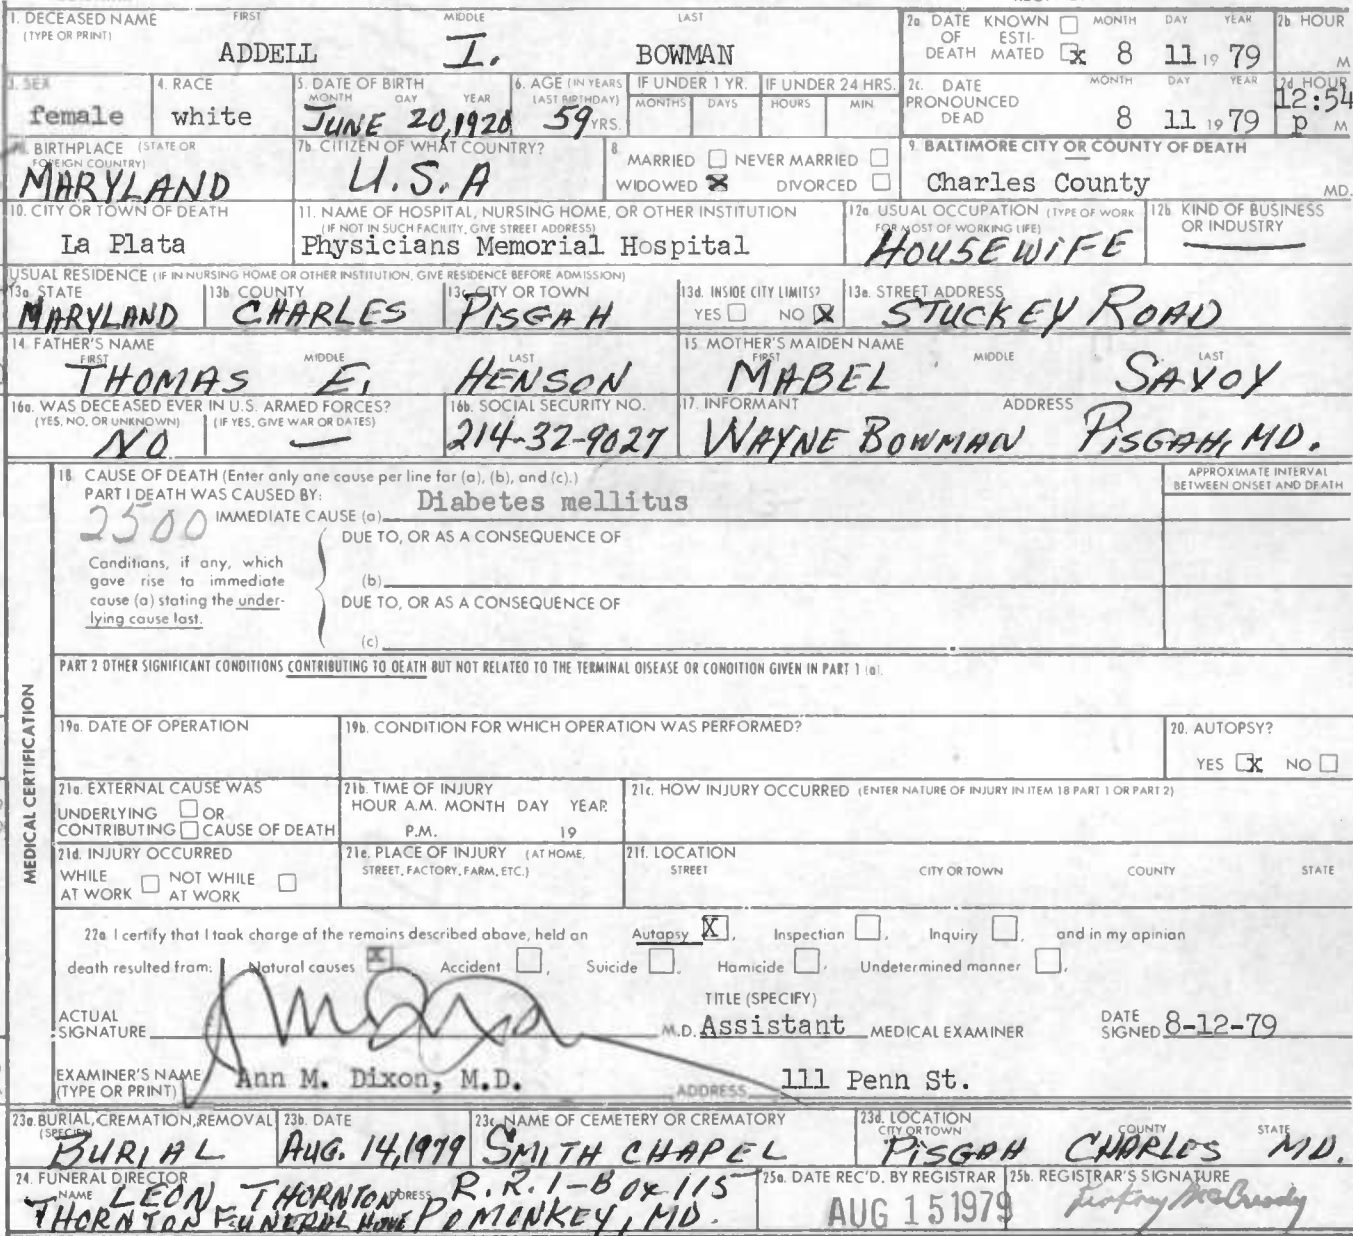 1. DECEASED NAME FIRST MIDDLE LAST
(TYPE OR PRINT)
ADDELL I. BOWMAN
2a DATE KNOWN MONTH DAY YEAR
OF ESTI-
DEATH MATED x 8 11 19 79
2b. HOUR
M
3. SEX
female
4. RACE
white
5. DATE OF BIRTH
MONTH DAY YEAR
JUNE 20, 1920
6. AGE (IN YEARS
LAST BIRTHDAY)
59 YRS.
IF UNDER 1 YR.
MONTHS DAYS
IF UNDER 24 HRS.
HOURS MIN.
2c. DATE MONTH DAY YEAR
PRONOUNCED
DEAD 8 11 19 79
2d. HOUR
12:54
p M
BIRTHPLACE (STATE OR
FOREIGN COUNTRY)
MARYLAND
7b. CITIZEN OF WHAT COUNTRY?
U.S.A
8.
MARRIED NEVER MARRIED
WIDOWED X DIVORCED
9. BALTIMORE CITY OR COUNTY OF DEATH
Charles County MD.
10. CITY OR TOWN OF DEATH
La Plata
11. NAME OF HOSPITAL, NURSING HOME, OR OTHER INSTITUTION
(IF NOT IN SUCH FACILITY, GIVE STREET ADDRESS)
Physicians Memorial Hospital
12a. USUAL OCCUPATION (TYPE OF WORK
FOR MOST OF WORKING LIFE)
HOUSEWIFE
12b. KIND OF BUSINESS
OR INDUSTRY
—
USUAL RESIDENCE (IF IN NURSING HOME OR OTHER INSTITUTION, GIVE RESIDENCE BEFORE ADMISSION)
13a. STATE
MARYLAND
13b. COUNTY
CHARLES
13c. CITY OR TOWN
PISGAH
13d. INSIDE CITY LIMITS?
YES NO X
13e. STREET ADDRESS
STUCKEY ROAD
14. FATHER'S NAME
FIRST MIDDLE LAST
THOMAS E. HENSON
15. MOTHER'S MAIDEN NAME
FIRST MIDDLE LAST
MABEL SAVOY
16a. WAS DECEASED EVER IN U.S. ARMED FORCES?
(YES, NO, OR UNKNOWN) (IF YES, GIVE WAR OR DATES)
NO —
16b. SOCIAL SECURITY NO.
214-32-9027
17. INFORMANT ADDRESS
WAYNE BOWMAN PISGAH, MD.
MEDICAL CERTIFICATION
18. CAUSE OF DEATH (Enter only one cause per line for (a), (b), and (c).)
PART I DEATH WAS CAUSED BY:
2500 IMMEDIATE CAUSE (a) Diabetes mellitus
APPROXIMATE INTERVAL
BETWEEN ONSET AND DEATH
DUE TO, OR AS A CONSEQUENCE OF
Conditions, if any, which
gave rise to immediate
cause (a) stating the under-
lying cause last.
(b)
DUE TO, OR AS A CONSEQUENCE OF
(c)
PART 2 OTHER SIGNIFICANT CONDITIONS CONTRIBUTING TO DEATH BUT NOT RELATED TO THE TERMINAL DISEASE OR CONDITION GIVEN IN PART 1 (a).
19a. DATE OF OPERATION
19b. CONDITION FOR WHICH OPERATION WAS PERFORMED?
20. AUTOPSY?
YES X NO
21a. EXTERNAL CAUSE WAS
UNDERLYING OR
CONTRIBUTING CAUSE OF DEATH
21b. TIME OF INJURY
HOUR A.M. MONTH DAY YEAR
P.M. 19
21c. HOW INJURY OCCURRED (ENTER NATURE OF INJURY IN ITEM 18 PART 1 OR PART 2)
21d. INJURY OCCURRED
WHILE NOT WHILE
AT WORK AT WORK
21e. PLACE OF INJURY (AT HOME,
STREET, FACTORY, FARM, ETC.)
21f. LOCATION
STREET CITY OR TOWN COUNTY STATE
22a I certify that I took charge of the remains described above, held an Autopsy X, Inspection , Inquiry , and in my opinion
death resulted from: Natural causes X Accident , Suicide , Homicide , Undetermined manner .
ACTUAL
SIGNATURE M.D.
TITLE (SPECIFY)
Assistant MEDICAL EXAMINER
DATE
SIGNED 8-12-79
EXAMINER'S NAME
(TYPE OR PRINT) Ann M. Dixon, M.D. ADDRESS 111 Penn St.
23a. BURIAL, CREMATION, REMOVAL
(SPECIFY)
BURIAL
23b. DATE
AUG. 14, 1979
23c. NAME OF CEMETERY OR CREMATORY
SMITH CHAPEL
23d. LOCATION
CITY OR TOWN COUNTY STATE
PISGAH CHARLES MD.
24. FUNERAL DIRECTOR
NAME LEON THORNTON ADDRESS R.R.1-Box 115
THORNTON FUNERAL HOME POMONKEY, MD.
25a. DATE REC'D. BY REGISTRAR
AUG 15 1979
25b. REGISTRAR'S SIGNATURE